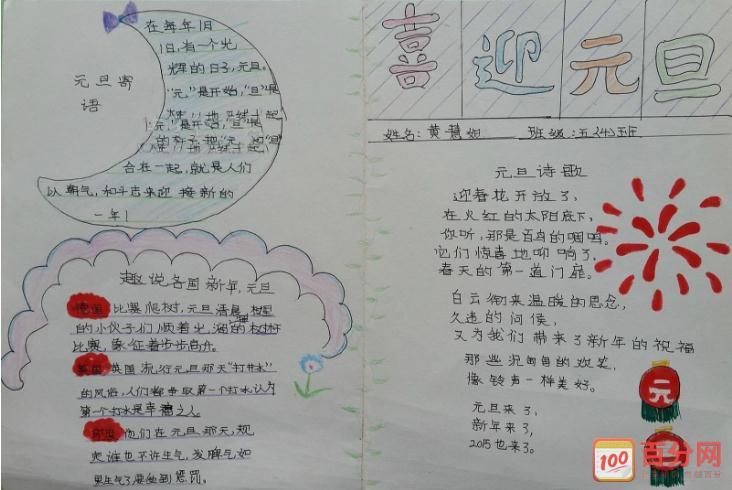 元旦寄
语
在每年1月
1日,有一个光
辉的日子,元旦。
"元"是开始,"旦"是
合在一起,就是人们
以朝气,和斗志来迎接新的
一年!
趣说各国新年,元旦
德国 比赛爬树,元旦清晨
的小伙子们顺着光
比赛,象征着步步高升。
英国 英国流行元旦那天"打井水"
的风俗,人们都争取第一个打水,认为
第一个打水是幸福之人。
他们在元旦那天,规
定谁也不许生气,发脾气如
果生气了要受到惩罚。
喜迎元旦
姓名:黄慧 班级:五(4)班
元旦诗歌
迎春花开放了,
在火红的太阳底下,
你听,那是百鸟的啁鸣。
它们惊喜地叩响了,
春天的第一道门扉。
白云衔来温暖的思念,
久违的问候,
又为我们带来了新年的祝福
那些泥的欢笑,
像铃声一样美好。
元旦来了,
新年来了,
2015也来了。
元
100
百分网